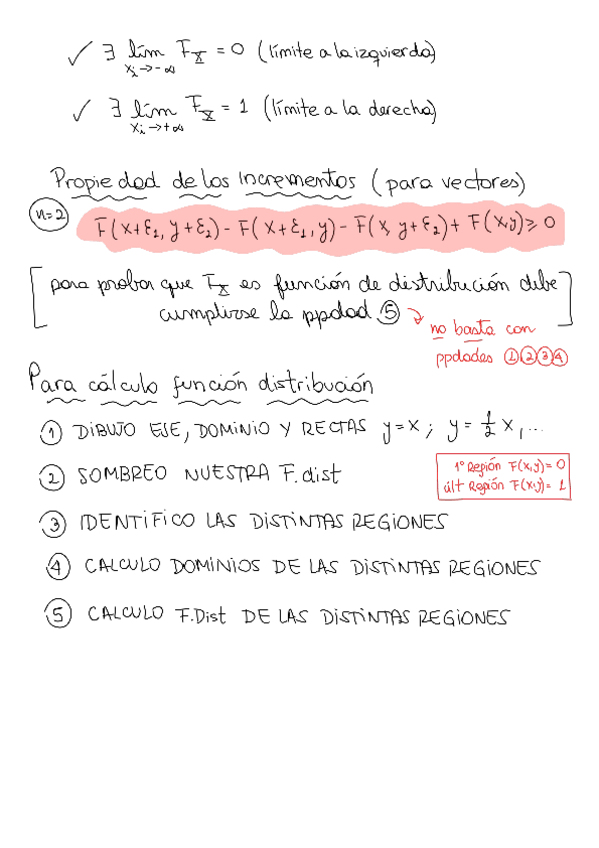 ✓ ∃ lím F_X = 0 (límite a la izquierda)
xᵢ→-∞
✓ ∃ lím F_X = 1 (límite a la derecha)
xᵢ→+∞
Propiedad de los incrementos (para vectores)
n=2
F(x+ε₁, y+ε₂) - F(x+ε₁, y) - F(x, y+ε₂) + F(x,y) ≥ 0
[para probar que F_X es función de distribución debe
cumplirse la ppdad ⑤]
no basta con
ppdades ①②③④
Para cálculo función distribución
① DIBUJO EJE, DOMINIO Y RECTAS y=x; y=½x,...
② SOMBREO NUESTRA F.dist
1º Región F(x,y)=0
últ Región F(x,y)=1
③ IDENTIFICO LAS DISTINTAS REGIONES
④ CALCULO DOMINIOS DE LAS DISTINTAS REGIONES
⑤ CALCULO F.Dist DE LAS DISTINTAS REGIONES